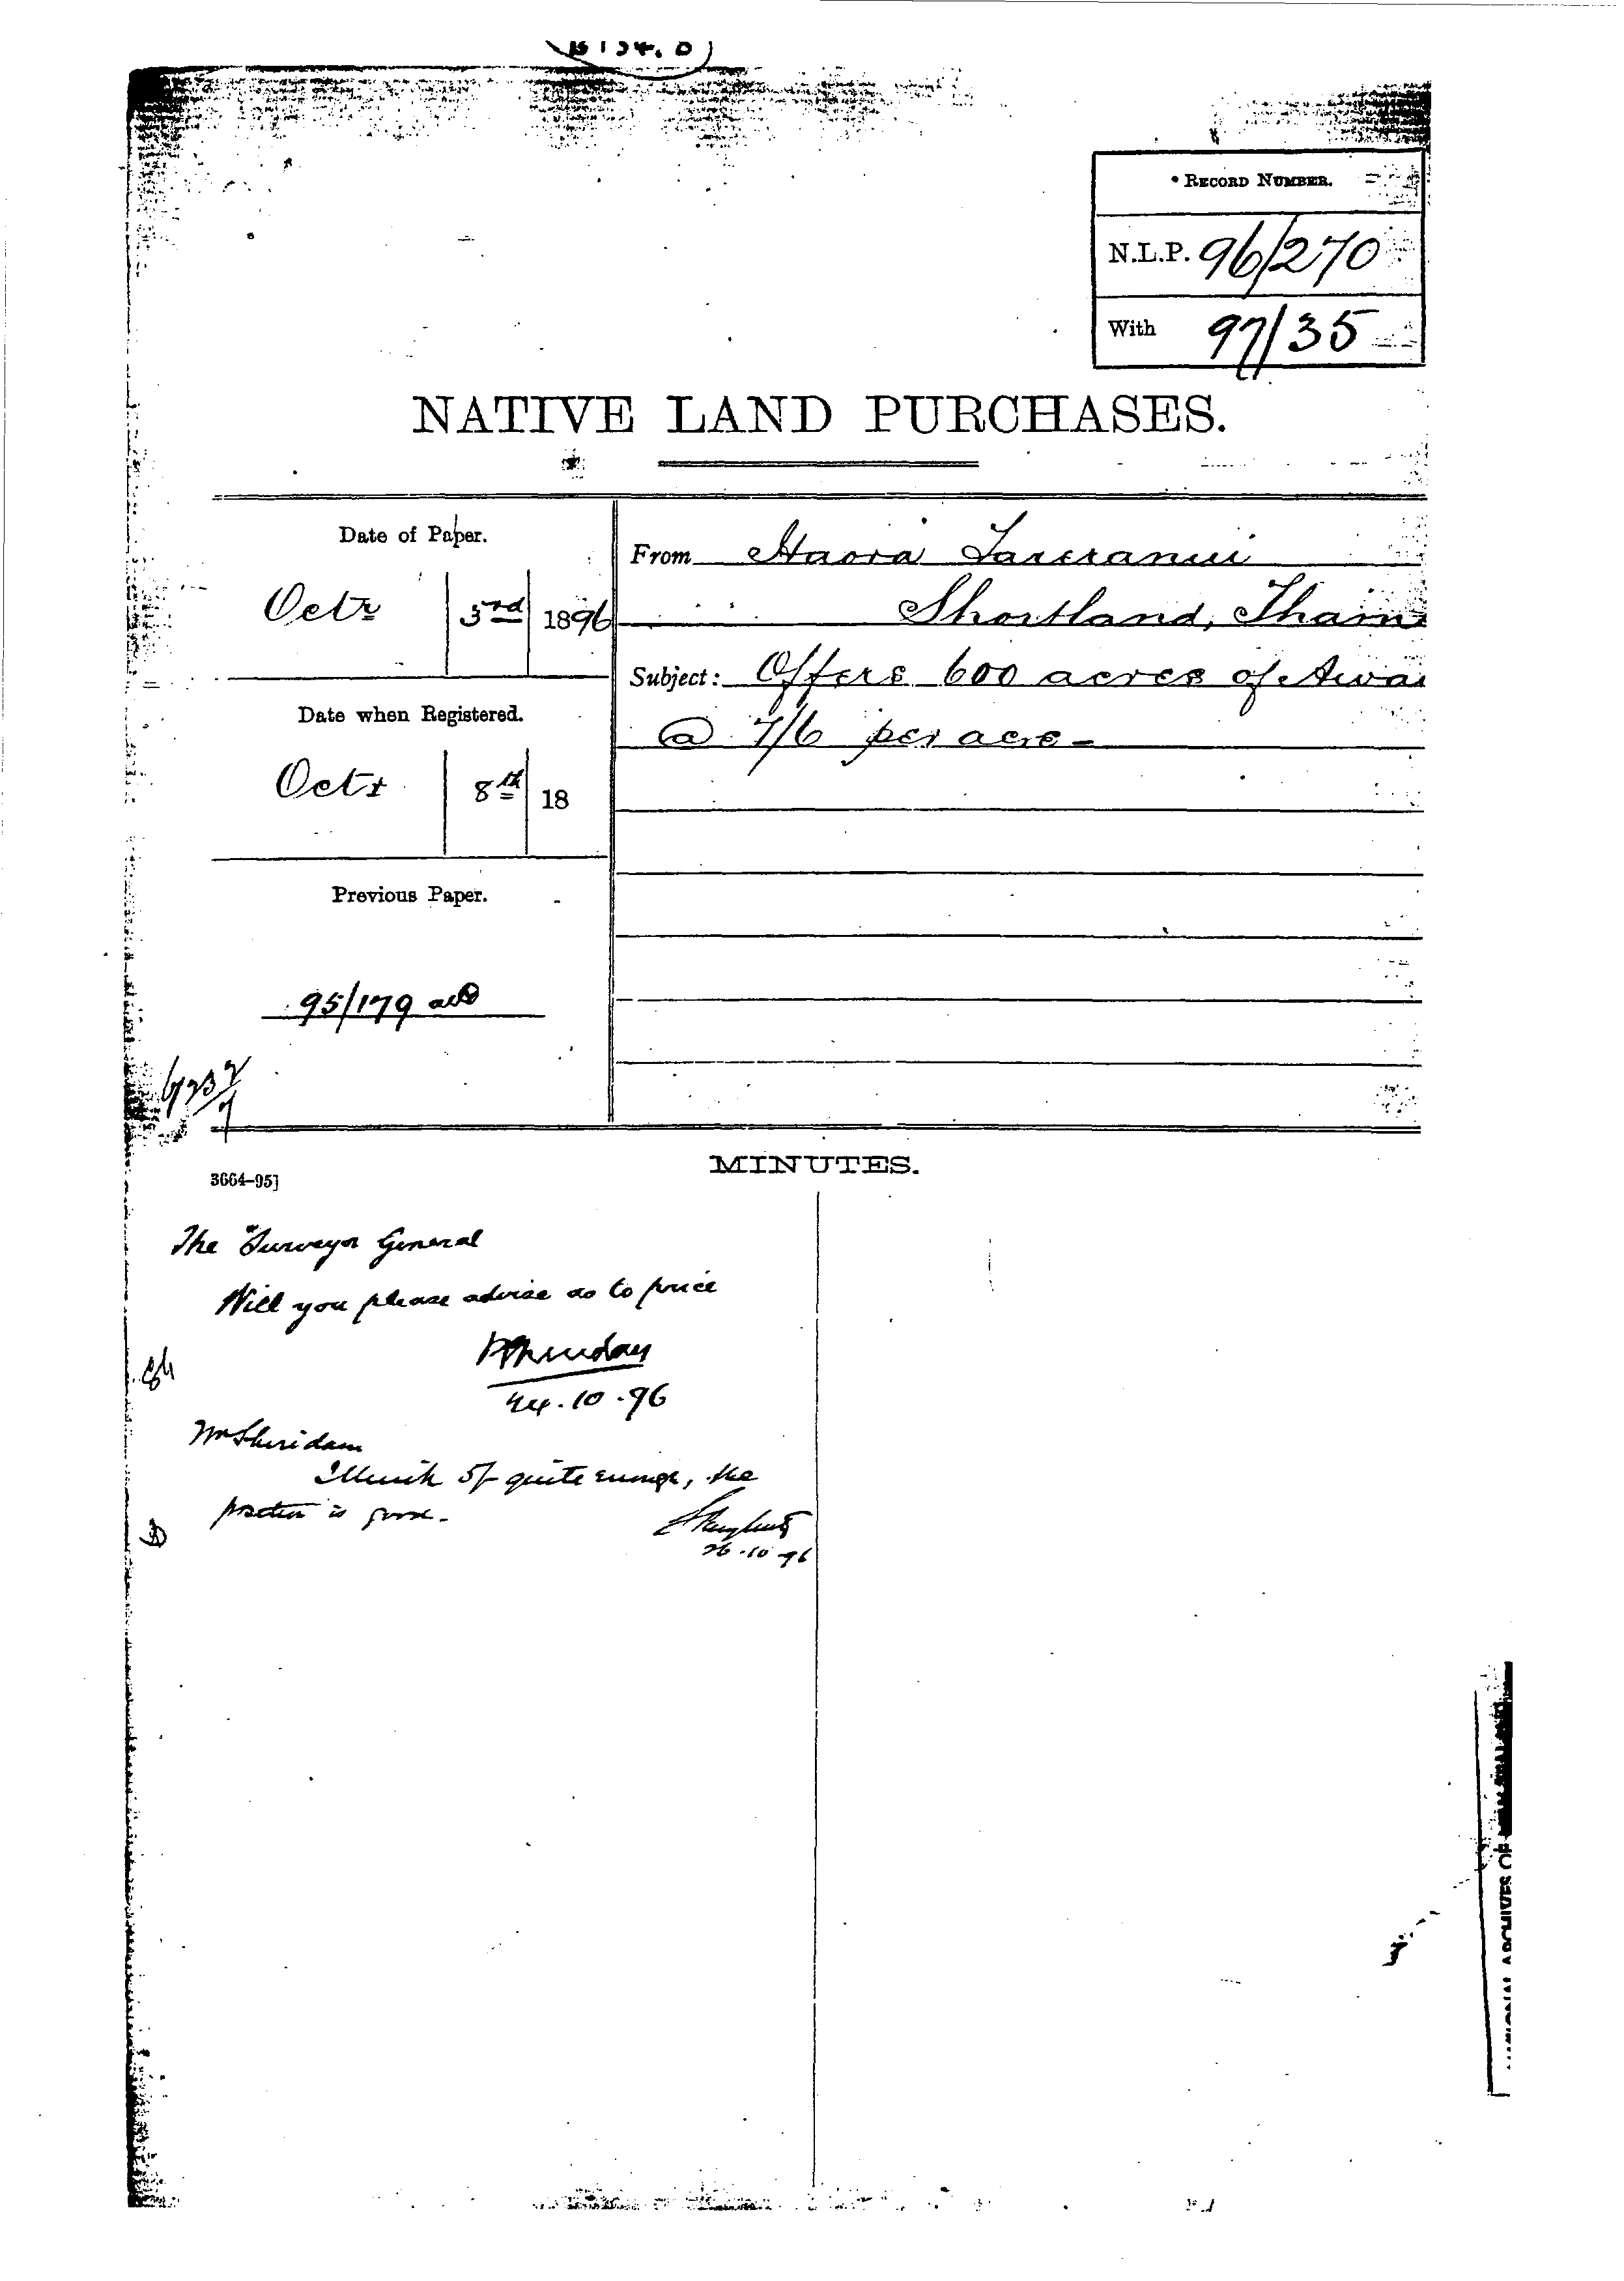 RECORD NUMBER.
N.L.P. 96/270
With 97/35
NATIVE LAND PURCHASES.
Date of Paper.
Octr 3rd 1896
From Haora Tareranui
Shortland, Tham
Subject: Offers 600 acres of Awai
@ 7/6 per acre -
Date when Registered.
Octr 8th 18
Previous Paper.
95/179
MINUTES.
3664–95]
The Surveyor General
Will you please advise as to price
PSheridan
24.10.96
Mr Sheridan
I think 5/- quite enough, the
position is good.
26.10.96
NATIONAL ARCHIVES OF